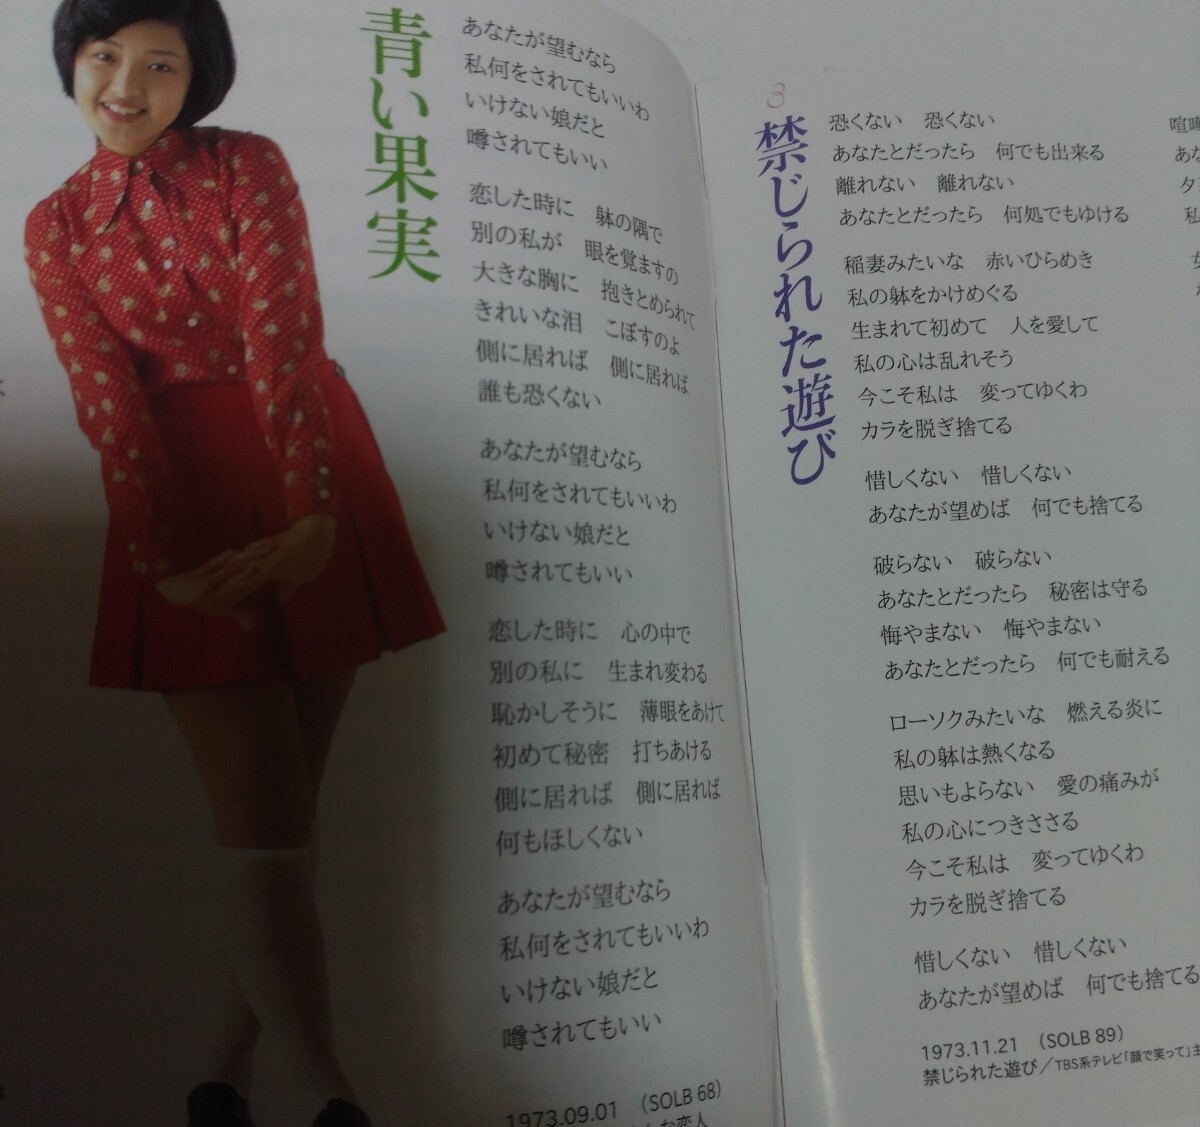 青い果実
あなたが望むなら
私何をされてもいいわ
いけない娘だと
噂されてもいい
恋した時に 躰の隅で
別の私が 眼を覚ますの
大きな胸に 抱きとめられて
きれいな泪 こぼすのよ
側に居れば 側に居れば
誰も恐くない
あなたが望むなら
私何をされてもいいわ
いけない娘だと
噂されてもいい
恋した時に 心の中で
別の私に 生まれ変わる
恥かしそうに 薄眼をあけて
初めて秘密 打ちあける
側に居れば 側に居れば
何もほしくない
あなたが望むなら
私何をされてもいいわ
いけない娘だと
噂されてもいい
1973.09.01 (SOLB 68)
3
禁じられた遊び
恐くない 恐くない
あなたとだったら 何でも出来る
離れない 離れない
あなたとだったら 何処でもゆける
稲妻みたいな 赤いひらめき
私の躰をかけめぐる
生まれて初めて 人を愛して
私の心は乱れそう
今こそ私は 変ってゆくわ
カラを脱ぎ捨てる
惜しくない 惜しくない
あなたが望めば 何でも捨てる
破らない 破らない
あなたとだったら 秘密は守る
悔やまない 悔やまない
あなたとだったら 何でも耐える
ローソクみたいな 燃える炎に
私の躰は熱くなる
思いもよらない 愛の痛みが
私の心につきささる
今こそ私は 変ってゆくわ
カラを脱ぎ捨てる
惜しくない 惜しくない
あなたが望めば 何でも捨てる
1973.11.21 (SOLB 89)
禁じられた遊び/TBS系テレビ「顔で笑って」主
喧嘩
あな
私